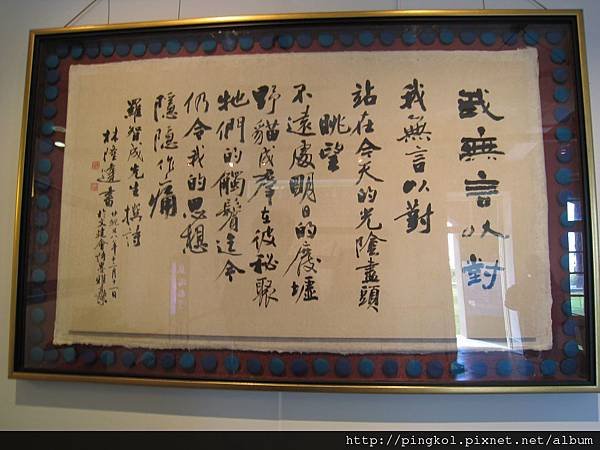 我無言以對
我無言以對
站在今天的光陰盡頭
眺望
不遠處明日的廢墟
野貓成群在彼秘聚
牠們的觸鬚迄今
仍令我的思想
隱隱作痛
羅智成先生撰詩
林隆達書
http://pingkol.pixnet.net/album